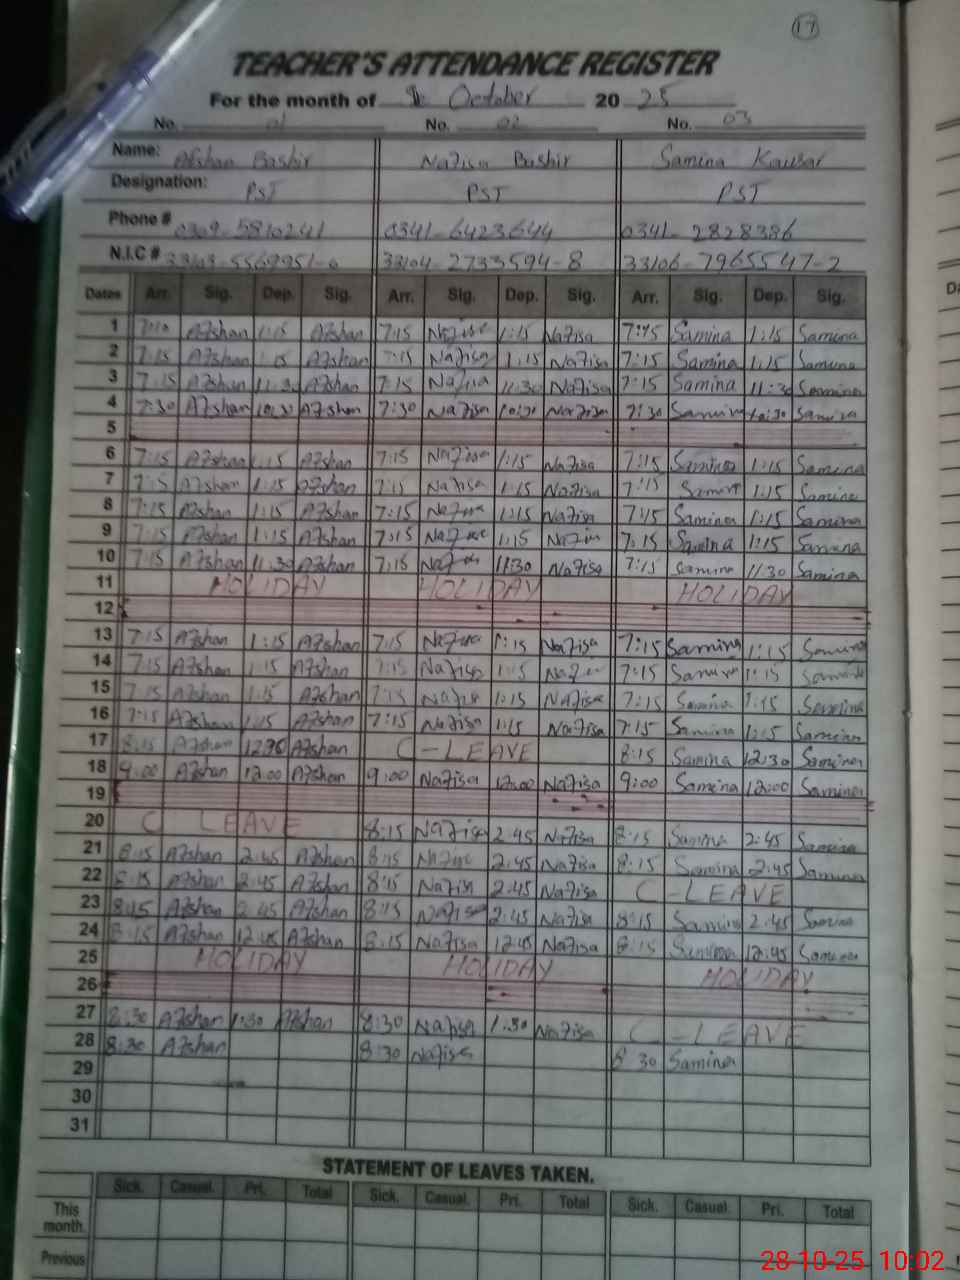 17
TEACHER'S ATTENDANCE REGISTER
For the month of October 2025
No. 01 No. 02 No. 03
Name: Afshan Bashir Nafisa Bashir Samina Kausar
Designation: PST PST PST
Phone # 0309-5810241 0341-6423644 0341-2828386
N.I.C # 33103-5569951-0 33104-2733594-8 33106-7965547-2
Dates Arr. Sig. Dep. Sig. Arr. Sig. Dep. Sig. Arr. Sig. Dep. Sig.
1 7:10 Afshan 1:15 Afshan 7:15 Nafisa 1:15 Nafisa 7:15 Samina 1:15 Samina
2 7:15 Afshan 1:15 Afshan 7:15 Nafisa 1:15 Nafisa 7:15 Samina 1:15 Samina
3 7:15 Afshan 11:30 Afshan 7:15 Nafisa 11:30 Nafisa 7:15 Samina 11:30 Samina
4 7:30 Afshan 10:30 Afshan 7:30 Nafisa 10:30 Nafisa 7:30 Samina 10:30 Samina
5
6 7:15 Afshan 1:15 Afshan 7:15 Nafisa 1:15 Nafisa 7:15 Samina 1:15 Samina
7 7:15 Afshan 1:15 Afshan 7:15 Nafisa 1:15 Nafisa 7:15 Samina 1:15 Samina
8 7:15 Afshan 1:15 Afshan 7:15 Nafisa 1:15 Nafisa 7:15 Samina 1:15 Samina
9 7:15 Afshan 1:15 Afshan 7:15 Nafisa 1:15 Nafisa 7:15 Samina 1:15 Samina
10 7:15 Afshan 11:30 Afshan 7:15 Nafisa 11:30 Nafisa 7:15 Samina 11:30 Samina
11 HOLIDAY HOLIDAY HOLIDAY
12
13 7:15 Afshan 1:15 Afshan 7:15 Nafisa 1:15 Nafisa 7:15 Samina 1:15 Samina
14 7:15 Afshan 1:15 Afshan 7:15 Nafisa 1:15 Nafisa 7:15 Samina 1:15 Samina
15 7:15 Afshan 1:15 Afshan 7:15 Nafisa 1:15 Nafisa 7:15 Samina 1:15 Samina
16 7:15 Afshan 1:15 Afshan 7:15 Nafisa 1:15 Nafisa 7:15 Samina 1:15 Samina
17 8:15 Afshan 12:30 Afshan C-LEAVE 8:15 Samina 12:30 Samina
18 9:00 Afshan 12:00 Afshan 9:00 Nafisa 12:00 Nafisa 9:00 Samina 12:00 Samina
19
20 C LEAVE 8:15 Nafisa 2:45 Nafisa 8:15 Samina 2:45 Samina
21 8:15 Afshan 2:45 Afshan 8:15 Nafisa 2:45 Nafisa 8:15 Samina 2:45 Samina
22 8:15 Afshan 2:45 Afshan 8:15 Nafisa 2:45 Nafisa C-LEAVE
23 8:15 Afshan 2:45 Afshan 8:15 Nafisa 2:45 Nafisa 8:15 Samina 2:45 Samina
24 8:15 Afshan 12:45 Afshan 8:15 Nafisa 12:45 Nafisa 8:15 Samina 12:45 Samina
25 HOLIDAY HOLIDAY HOLIDAY
26
27 8:30 Afshan 1:30 Afshan 8:30 Nafisa 1:30 Nafisa C-LEAVE
28 8:30 Afshan 8:30 Nafisa 8:30 Samina
29
30
31
STATEMENT OF LEAVES TAKEN.
Sick. Casual. Pri. Total Sick. Casual. Pri. Total Sick. Casual. Pri. Total
This month.
Previous
28-10-25 10:02